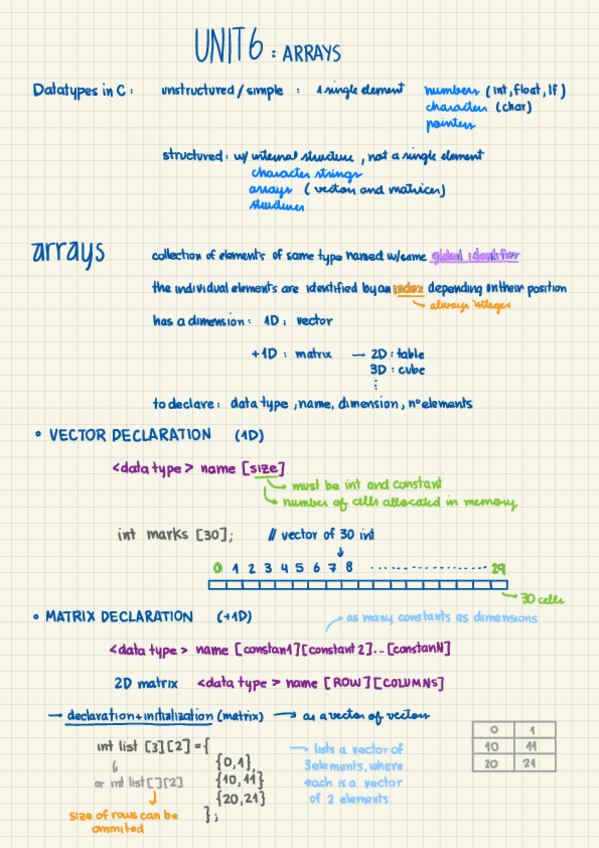 UNIT 6 : ARRAYS
Datatypes in C : unstructured / simple : 1 single element numbers (int, float, lf)
characters (char)
pointers
structured : w/ internal structure, not a single element
character strings
arrays (vectors and matrices)
structures
arrays collection of elements of same type named w/same global identifier
the individual elements are identified by an index depending on their position
always integer
has a dimension : 1D : vector
+1D : matrix → 2D : table
3D : cube
⋮
to declare : data type, name, dimension, nº elements
• VECTOR DECLARATION (1D)
<data type> name [size]
must be int and constant
number of cells allocated in memory
int marks [30]; // vector of 30 int
0 1 2 3 4 5 6 7 8 ................ 29
30 cells
• MATRIX DECLARATION (+1D) as many constants as dimensions
<data type> name [constan1][constant2]...[constanN]
2D matrix <data type> name [ROW][COLUMNS]
→ declaration+initialization (matrix) → as a vector of vectors
int list [3][2] = {
{0,1},
{10,11}
{20,21}
};
or int list[][2]
size of rows can be
ommited
→ lists a vector of
3 elements, where
each is a vector
of 2 elements
0 1
10 11
20 21